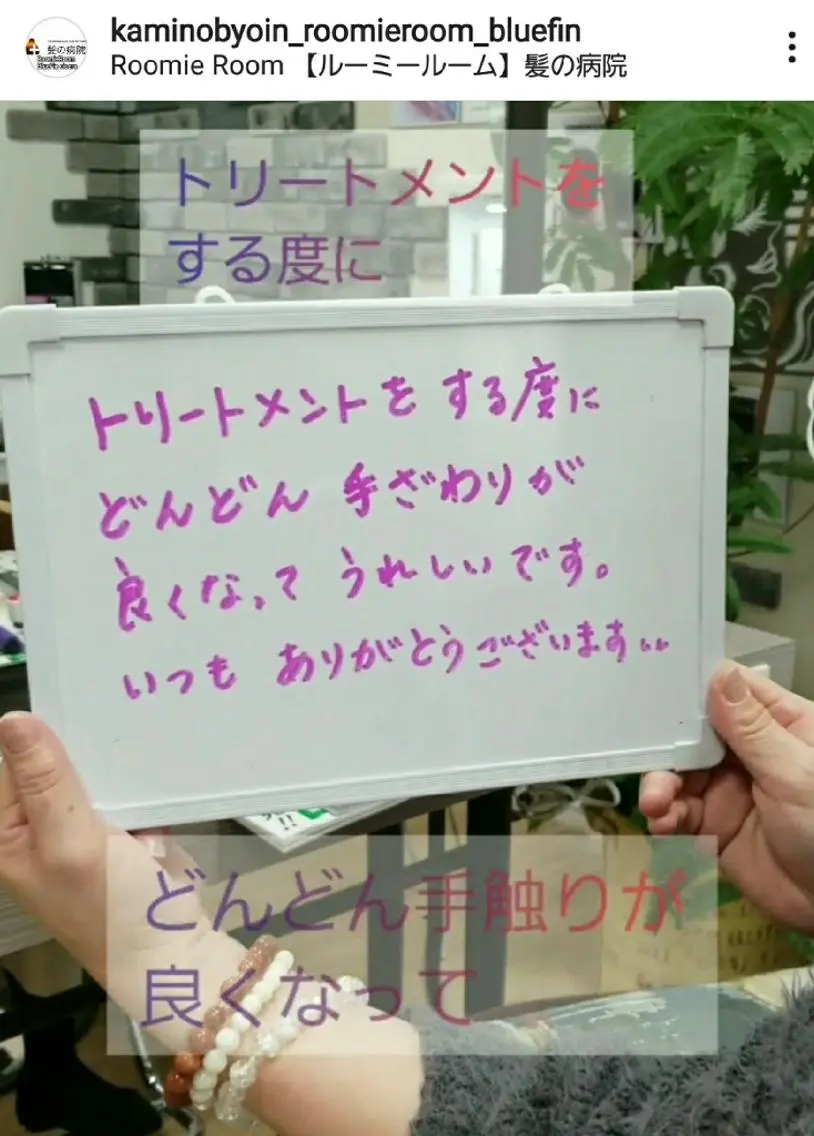 kaminobyoin_roomieroom_bluefin
Roomie Room 【ルーミールーム】髪の病院
髪の病院
RoomieRoom
トリートメントを
する度に
トリートメントを する度に
どんどん 手ざわりが
良くなって うれしいです。
いつも ありがとうございます
!!
どんどん手触りが
良くなって